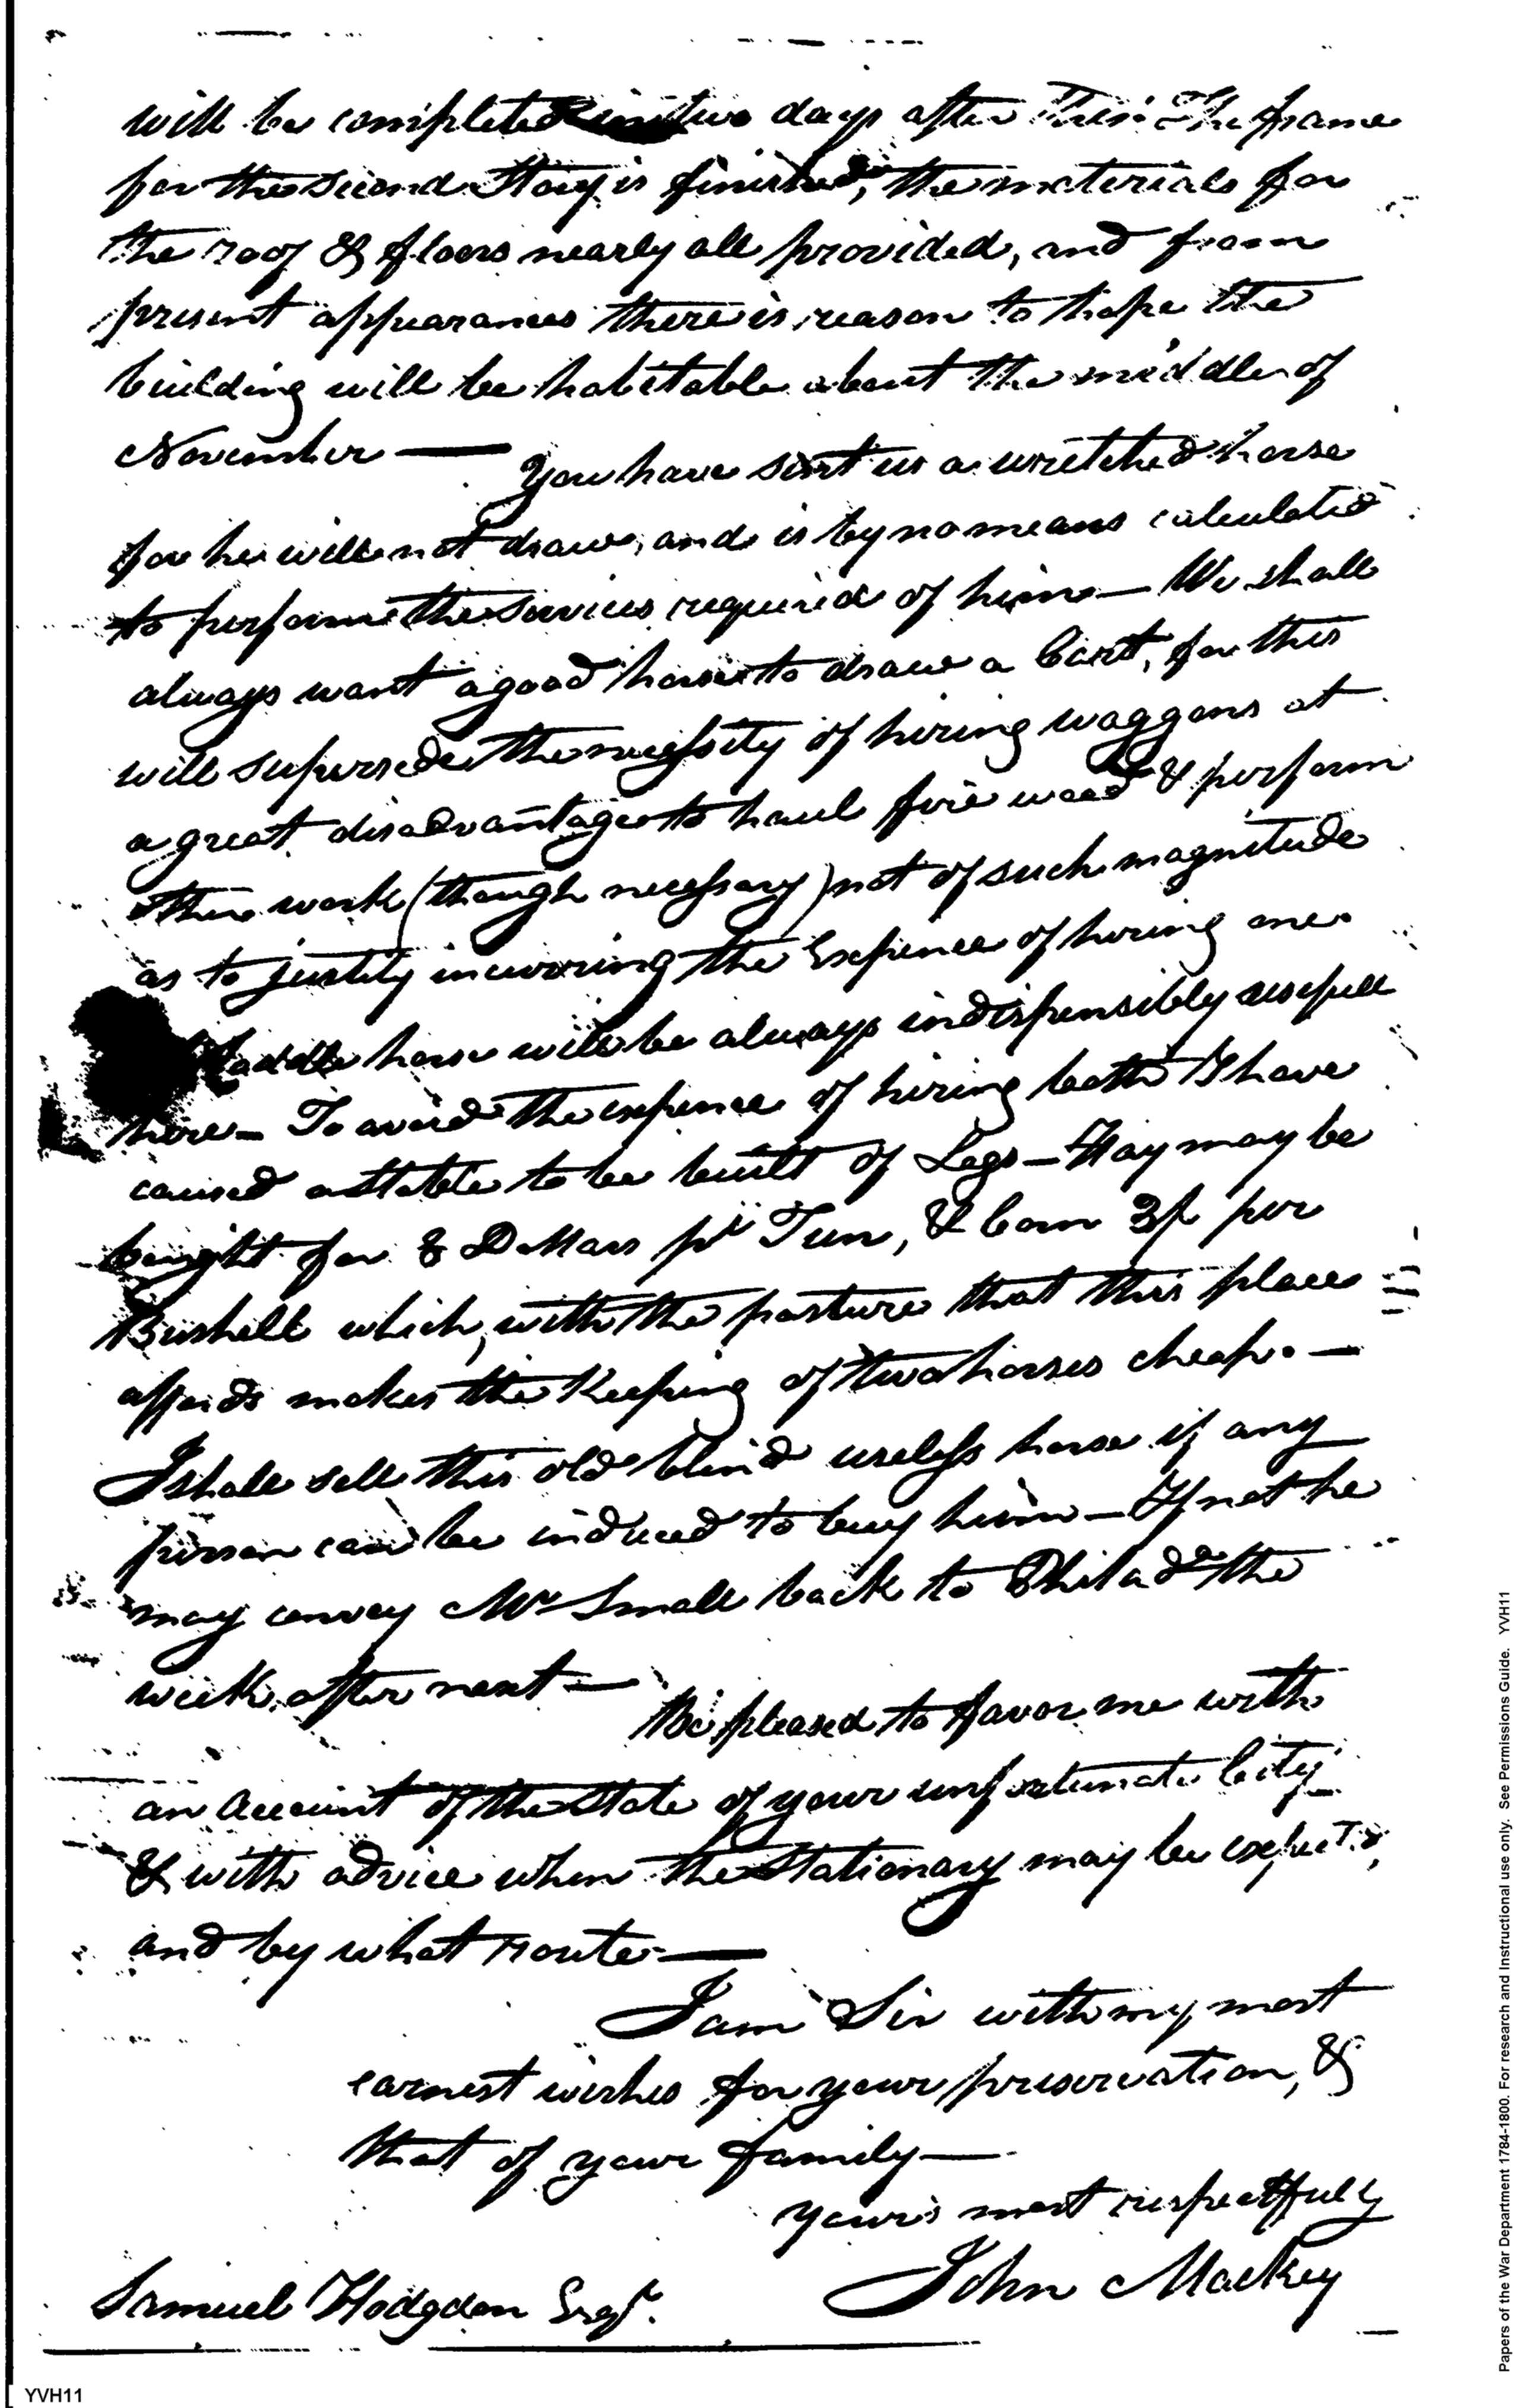 will be completed in two days after this. The frame
for the second Story is finished, the materials for
the roof & floors nearly all provided, and from
present appearances there is reason to hope the
building will be habitable about the middle of
November — You have sent us a wretched horse
for he will not draw, and is by no means calculated
to perform the services required of him — We shall
always want a good horse to draw a Cart, for this
will supersede the necessity of hiring waggons at
a great disadvantage to haul fire wood & perform
other work (though necessary) not of such magnitude
as to justify incurring the Expence of hiring one.
Saddle horse will be always indispensibly usefull
here — To avoid the expence of hiring both I have
caused a stable to be built of Logs — Hay may be
bought for 8 Dollars pr Tun, & Corn 3/ per
Bushell which, with the pasture that this place
affords makes the Keeping of two horses cheap. —
I shall sell this old blind useless horse if any
person can be induced to buy him — If not he
may convey Mr Small back to Philada the
week after next —
Be pleased to favor me with
an Account of the State of your unfortunate City
& with advice when the Stationary may be expected,
and by what route —
I am Sir with my most
earnest wishes for your preservation, &
that of your family —
Your's most respectfully
John Mackey
Samuel Hodgdon Esqr.
YVH11
Papers of the War Department 1784-1800. For research and Instructional use only. See Permissions Guide. YVH11